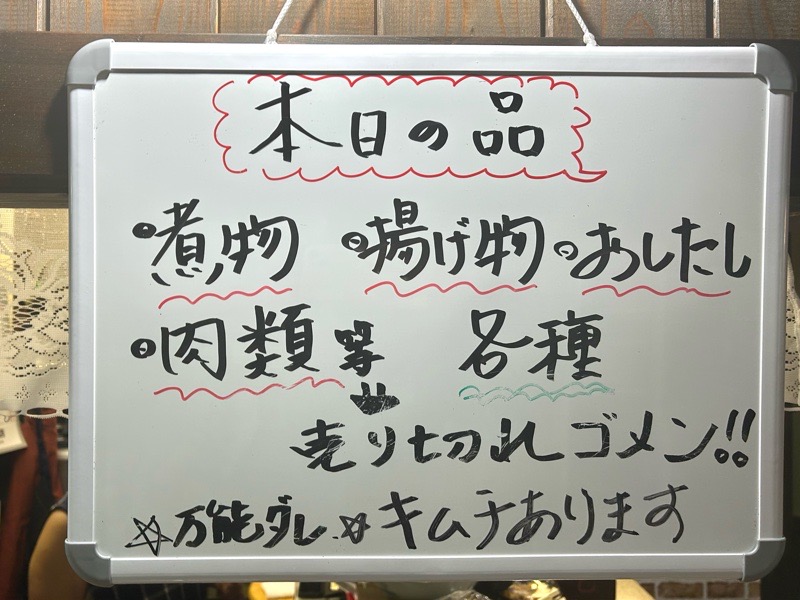 本日の品
・煮物 ・揚げ物 ・おしたし
・肉類等 各種
売り切れゴメン!!
☆万能ダレ ☆キムチあります